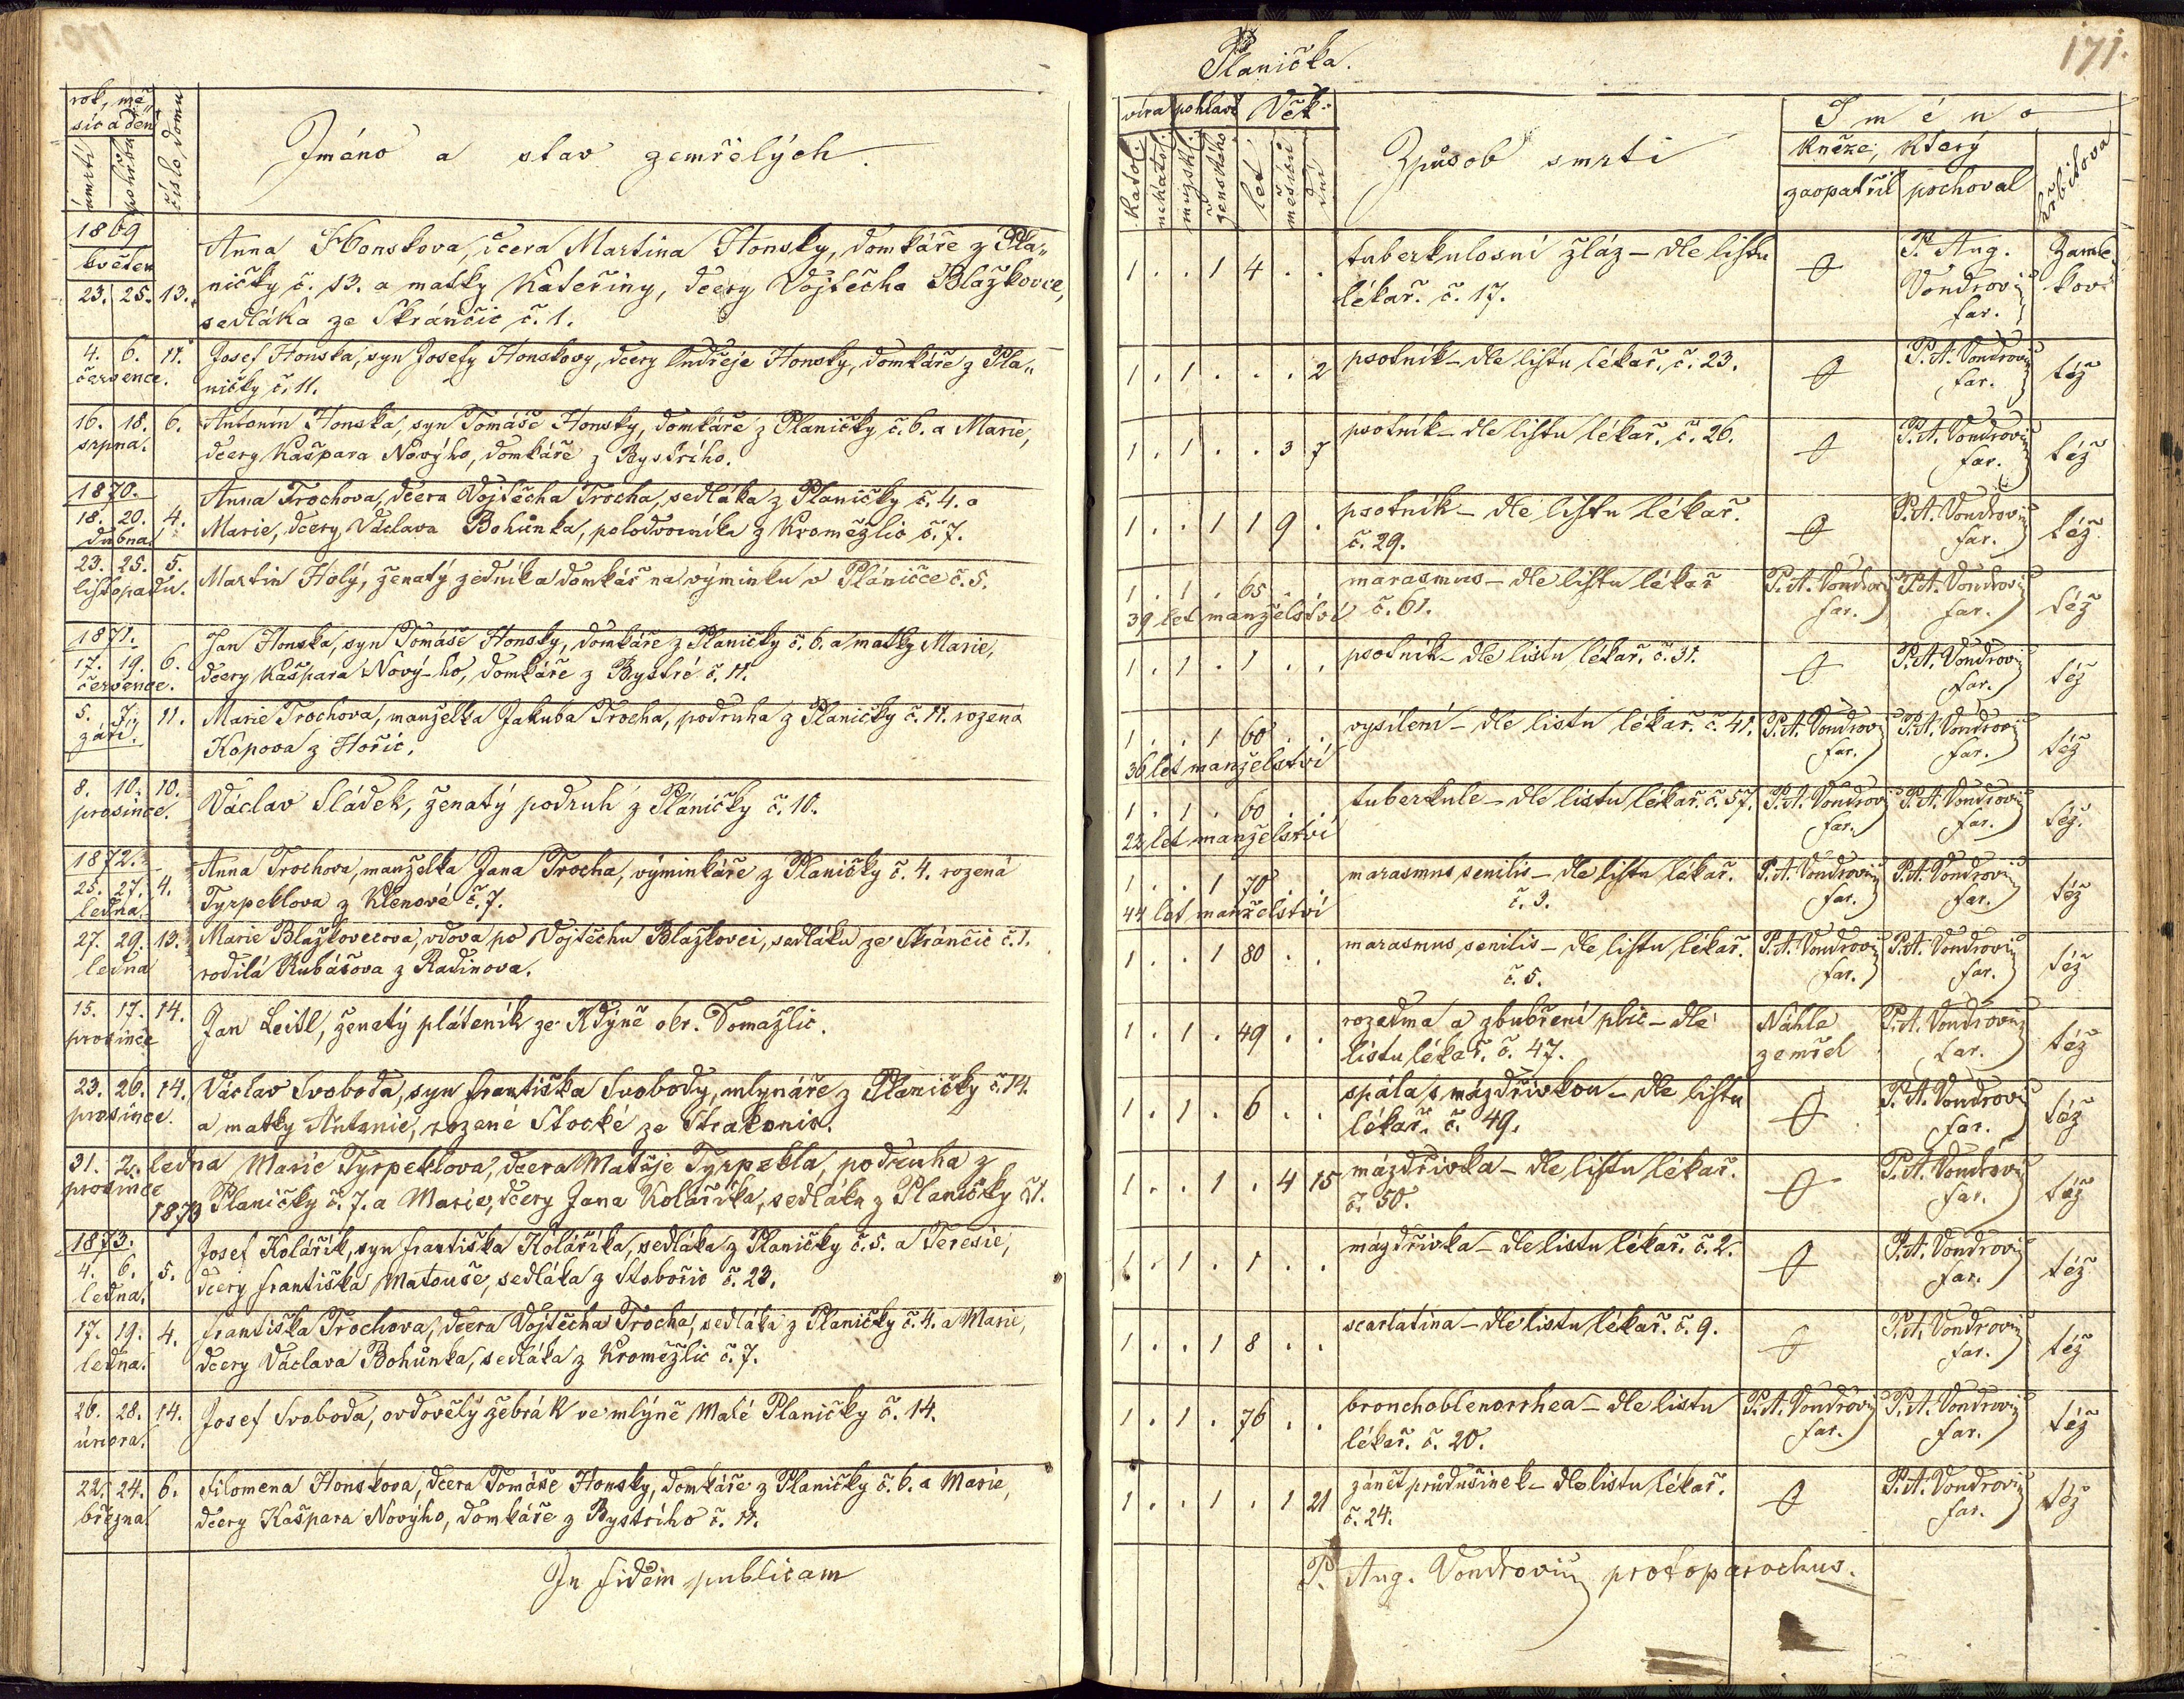 170.
rok, mě„
síc a den
úmrtí
pohřbu
číslo domu
Jméno a stav zemřelých.
1869
květen
23. 25. 13.
Anna Honskova, dcera Martina Honsky, domkáře z Pla„
ničky č. 13. a matky Kateřiny, dcery Vojtěcha Blažkovce,
sedláka ze Skránčic č. 1.
4. 6. 11.
července.
Josef Honska, syn Josefy Honskovy, dcery Ondřeje Honsky, domkáře z Pla„
ničky č. 11.
16. 18. 6.
srpna.
Antonín Honska, syn Tomáše Honsky, domkáře z Planičky č. 6. a Marie,
dcery Kašpara Nového, domkáře z Bystrího.
1870.
18. 20. 4.
dubna.
Anna Trochova, dcera Vojtěcha Trocha, sedláka z Planičky č. 4. a
Marie, dcery Václava Bohůnka, polodvorníka z Kroměžlic č. 7.
23. 25. 5.
listopadu.
Martin Holý, ženatý zedník a domkář na výminku v Pláničce č. 5.
1871.
17. 19. 6.
července.
Jan Honska, syn Tomáše Honsky, domkáře z Planičky č. 6. a matky Marie,
dcery Kašpara Nový-ho, domkáře z Bystré č. 11.
5. 7. 11.
září.
Marie Trochova, manželka Jakuba Trocha, podruha z Planičky č. 11. rozená
Kopova z Hořic.
8. 10. 10.
prosince.
Václav Sládek, ženatý podruh z Pláničky č. 10.
1872.
25. 27. 4.
ledna.
Anna Trochova, manželka Jana Trocha, výminkáře z Planičky č. 4. rozená
Tyrpeklova z Klenové č. 7.
27. 29. 13.
ledna
Marie Blažkovcova, vdova po Vojtěchu Blažkovci, sedláku ze Skránčic č. 1.
rodilá Kubášova z Radinova.
15. 17. 14.
prosince
Jan Leitl, ženatý pláteník ze Kdýně okr. Domažlic.
23. 26. 14.
prosince.
Václav Svoboda, syn Františka Svobody, mlynáře z Planičky č. 14.
a matky Antonie, rozené Stocké ze Strakonic.
31. 2. ledna Marie Tyrpeklova, dcera Matěje Tyrpekla, podruha z
prosince
1873 Planičky č. 7. a Marie, dcery Jana Kolaříka, sedláka z Planičky č. 1.
1873.
4. 6. 5.
ledna.
Josef Kolářík, syn Františka Kolaříka, sedláka z Planičky č. 5. a Teresie,
dcery Františka Matouše, sedláka z Stobořic č. 23.
17. 19. 4.
ledna.
Františka Trochova, dcera Vojtěcha Trocha, sedláka z Planičky č. 4. a Marie,
dcery Václava Bohůnka, sedláka z Kroměžlic č. 7.
26. 28. 14.
února.
Josef Svoboda, ovdovělý žebrák ve mlýně Malé Planičky č. 14.
22. 24. 6.
března.
Filomena Honskova, dcera Tomáše Honsky, domkáře z Planičky č. 6. a Marie,
dcery Kašpara Nového, domkáře z Bystrího č. 11.
In fidem publicam
Planička.
171.
víra pohlaví Věk
katol.
nekatol.
mužsk.
ženského
let
měsíců
dní
Způsob smrti
Jméno
kněze, který
zaopatřil pochoval
hřbitova
1 . . 1 4 . . tuberkulosní žláz – dle listu
lékař. č. 17.
P. Aug.
Vondrovic
far.
Zámle
kov
1 . 1 . . . 2 psotník – dle listu lékař. č. 23. P. A. Vondrovic
far. též
1 . 1 . . 3 7 psotník – dle listu lékař. č. 26. P. A. Vondrovic
far. též
1 . . 1 1 9 . psotník – dle listu lékař.
č. 29. P. A. Vondrovic
far. též
1 . 1 . 65 . . marasmus – dle listu lékař
39 let manželství č. 61. P. A. Vondrovic far. P. A. Vondrovic far. též
1 . 1 . 1 . . psotník – dle listu lékař. č. 31. P. A. Vondrovic
far. též
1 . . 1 60 . . vysílení – dle listu lékař. č. 41. P. A. Vondrovic far. P. A. Vondrovic far. též
36 let manželství
1 . 1 . 60 . . tuberkule – dle listu lékař. č. 57. P. A. Vondrovic far. P. A. Vondrovic far. též.
22 let manželství
1 . . 1 70 . . marasmus senilis – dle listu lékař.
č. 3. P. A. Vondrovic far. P. A. Vondrovic far. též
44 let manželství
1 . . 1 80 . . marasmus senilis – dle listu lékař.
č. 5. P. A. Vondrovic far. P. A. Vondrovic far. též
1 . 1 . 49 . . rozedma a zbubření plic – dle
listu lékař. č. 47. Náhle
zemřel P. A. Vondrovic
far. též
1 . 1 . 6 . . spála s mázdřivkou – dle listu
lékař. č. 49. P. A. Vondrovic
far. též
1 . . 1 . 4 15 mázdřivka – dle listu lékař.
č. 50. P. A. Vondrovic
far. též
1 . 1 . 1 . . mázdřivka – dle listu lékař. č. 2. P. A. Vondrovic
far. též
1 . . 1 8 . . scarlatina – dle listu lékař. č. 9. P. A. Vondrovic
far. též
1 . 1 . 76 . . bronchoblenorrhea – dle listu
lékař. č. 20. P. A. Vondrovic far. P. A. Vondrovic far. též
1 . . 1 . 1 21 zánět průdušinek – dle listu lékař.
č. 24. P. A. Vondrovic
far. též
P. Aug. Vondrovic protoparochus.